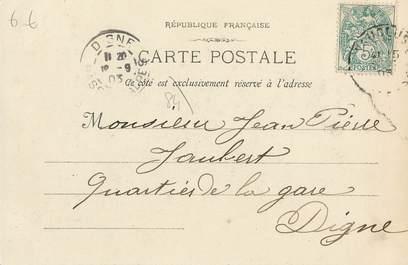 6 €
RÉPUBLIQUE FRANÇAISE
CARTE POSTALE
Ce côté est exclusivement réservé à l'adresse
DIGNE
84
Monsieur Jean Pierre
Jaubert
Quartier de la gare
Digne